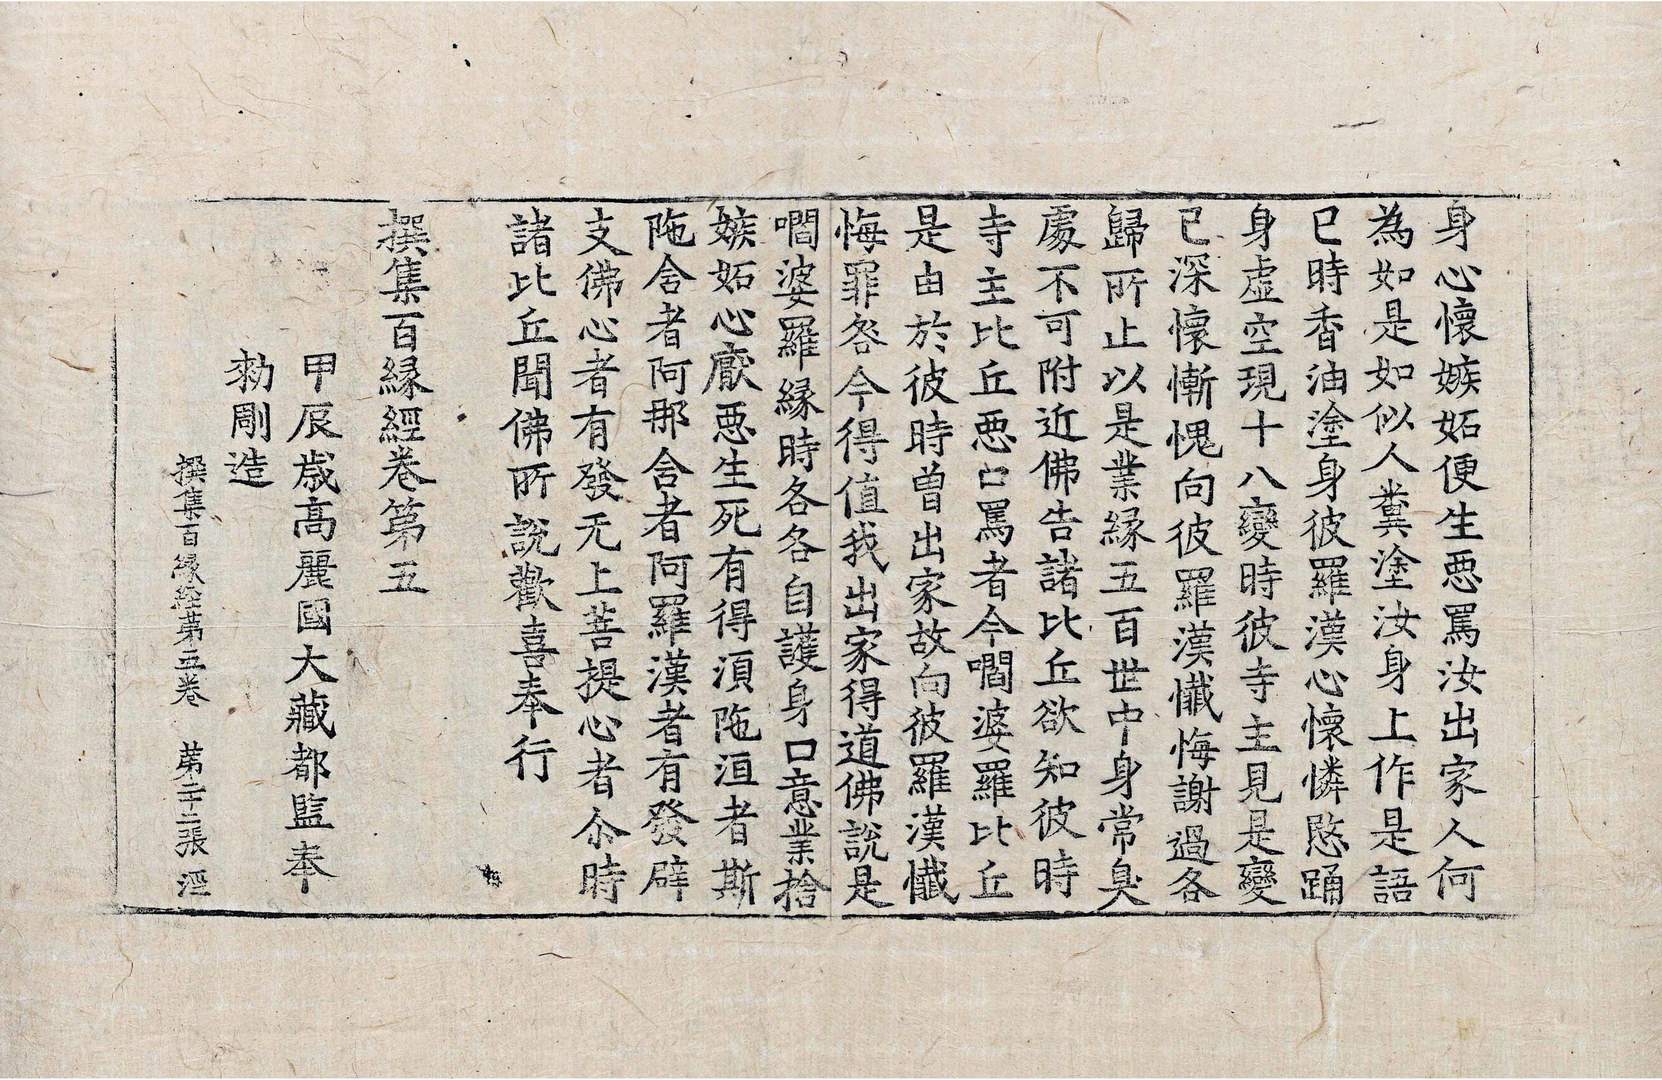 身心懷嫉妬便生惡罵汝出家人何
為如是如似人糞塗汝身上作是語
已時香油塗身彼羅漢心懷憐愍踊
身虛空現十八變時彼寺主見是變
已深懷慚愧向彼羅漢懺悔謝過各
歸所止以是業緣五百世中身常臭
處不可附近佛告諸比丘欲知彼時
寺主比丘惡口罵者今嚪婆羅比丘
是由於彼時曾出家故向彼羅漢懺
悔罪咎今得值我出家得道佛說是
嚪婆羅緣時各各自護身口意業捨
嫉妬心厭惡生死有得湏陁洹者斯
陁含者阿那含者阿羅漢者有發辟
支佛心者有發无上菩提心者尒時
諸比丘聞佛所說歡喜奉行
撰集百緣經卷第五
甲辰歲高麗國大藏都監奉
勑彫造
撰集百緣經第五卷 第二十二張 溼